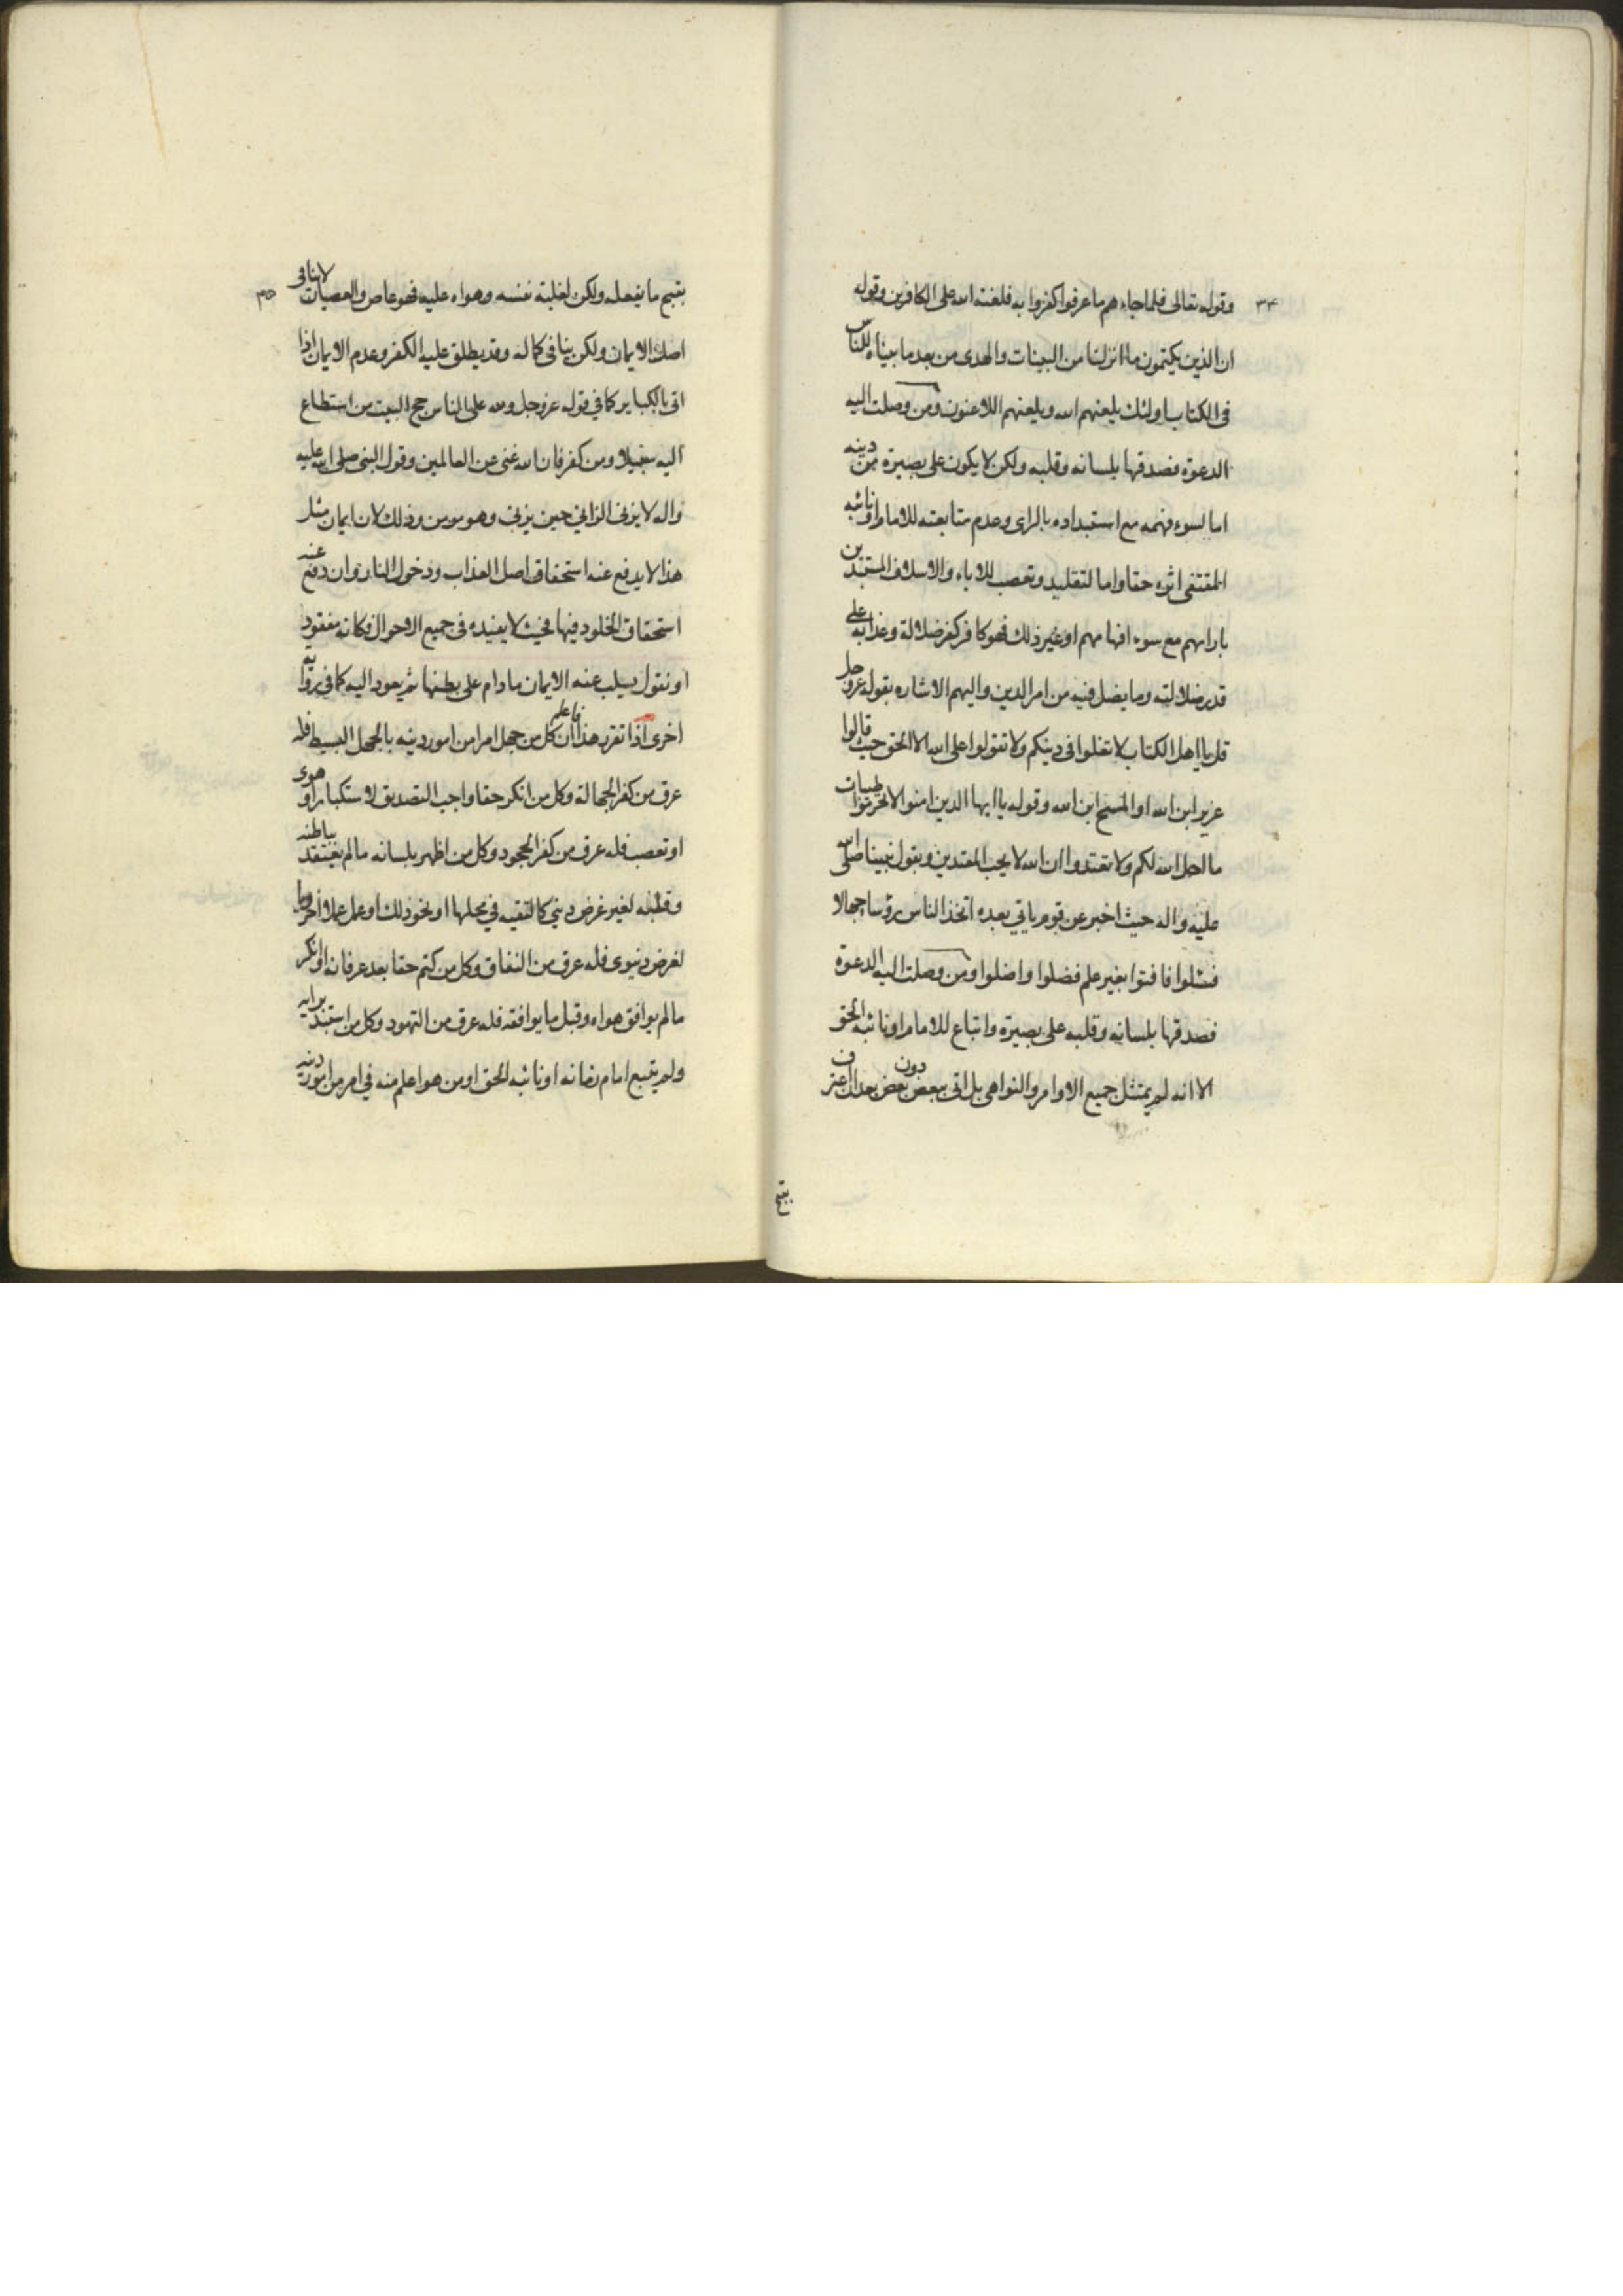 ٣٤
وقوله تعالى فلما جاءهم ما عرفوا كفروا به فلعنة الله على الكافرين وقوله
ان الذين يكتمون ما انزلنا من البينات والهدى من بعد ما بيناه للناس
فى الكتاب اولئك يلعنهم الله ويلعنهم اللاعنون ومن وصلت اليه
الدعوة فصدقها بلسانه وقلبه ولكن لا يكون على بصيرة من دينه
اما لسوء فهمه مع استبداده بالراى وعدم متابعته للامام او نائبه
المقتفى اثره حقا واما لتقليد وتعصب للاباء والاسلاف المستبدين
بارائهم مع سوء افهامهم او غير ذلك فهو كافر كفر ضلالة وعذابه على
قدر ضلالته وما يضل فيه من امر الدين واليهم الاشاره بقوله عز وجل
قل يا اهل الكتاب لا تغلوا فى دينكم ولا تقولوا على الله الا الحق حيث قالوا
عزير ابن الله او المسيح ابن الله وقوله يا ايها الذين امنوا لا تحرموا طيبات
ما احل الله لكم ولا تعتدوا ان الله لا يحب المعتدين وبقول نبينا صلى الله
عليه واله حيث اخبر عن قوم ياتي بعده اتخذ الناس رؤسا جهالا
فسئلوا فافتوا بغير علم فضلوا واضلوا ومن وصلت اليه الدعوة
فصدقها بلسانه وقلبه على بصيرة واتباع للامام او نائبه الحق
الا انه لم يمتثل جميع الاوامر والنواهى بل اتى ببعض دون بعض بعد ان اعترف
بقبح
٣٥
بقبح ما يفعله ولكن لغلبة نفسه وهواه عليه فهو عاص والعصيان لا ينافى
اصل الايمان ولكن ينافى كماله وقد يطلق عليه الكفر وعدم الايمان اذا
اتى بالكباير كما في قوله عز وجل ولله على الناس حج البيت من استطاع
اليه سبيلا ومن كفر فان الله غنى عن العالمين وقول النبى صلى الله عليه
واله لا يزنى الزانى حين يزنى وهو مومن وذلك لان ايمان مثل
هذا لا يدفع عنه استحقاق اصل العذاب ودخول النار وان دفع عنه
استحقاق الخلود فيها فحيث لا يفيده فى جميع الاحوال فكانه مفقود
او نقول يسلب عنه الايمان ما دام على بطنها ثم يعود اليه كما فى رواية
اخرى اذا تقرر هذا فاعلم ان كل من جهل امرا من امور دينه بالجهل البسيط فله
عرق من كفر الجهالة وكل من انكر حقا واجب التصديق لاستكبار او هوى
او تعصب فله عرق من كفر الجحود وكل من اظهر بلسانه ما لم يعتقد بباطنه
وقلبه لغير غرض دينى كالتقيه فى محلها او نحو ذلك او عمل عملا اخرويا
لغرض دنيوى فله عرق من النفاق وكل من كتم حقا بعد عرفانه او انكر
ما لم يوافق هواه وقبل ما يوافقه فله عرق من التهود وكل من استبد برايه
ولم يتبع امام زمانه او نائبه الحق او من هو اعلم منه فى امر من امور دينه